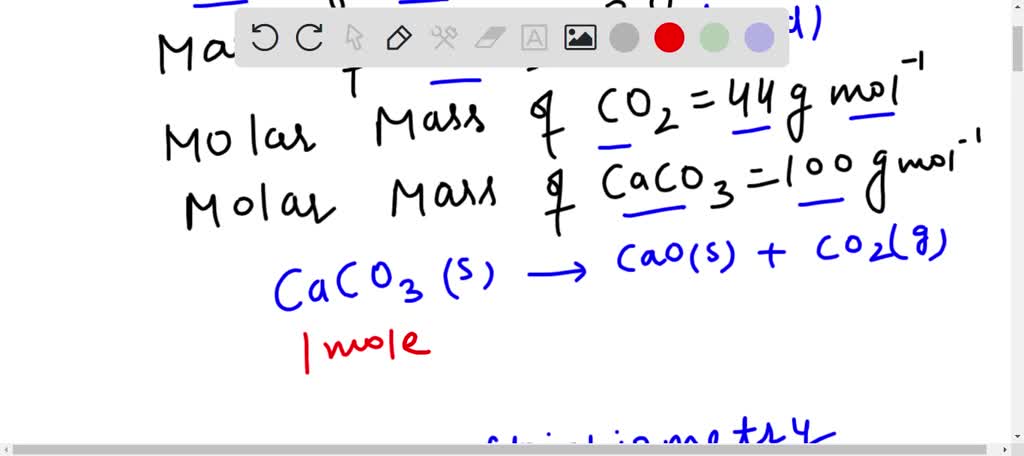 Ma
Molar Mass of CO₂ = 44 g mol⁻¹
Molar Mass of CaCO₃ = 100 g mol⁻¹
CaCO₃ (s) → CaO(s) + CO₂(g)
1 mole